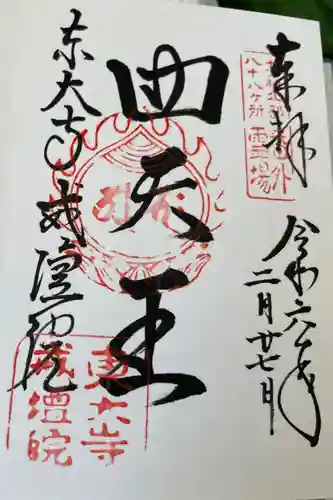 奉拝
八十八ヶ所
霊場
令和六年
二月廿七日
四天王
東大寺戒壇院
東大寺
戒壇院